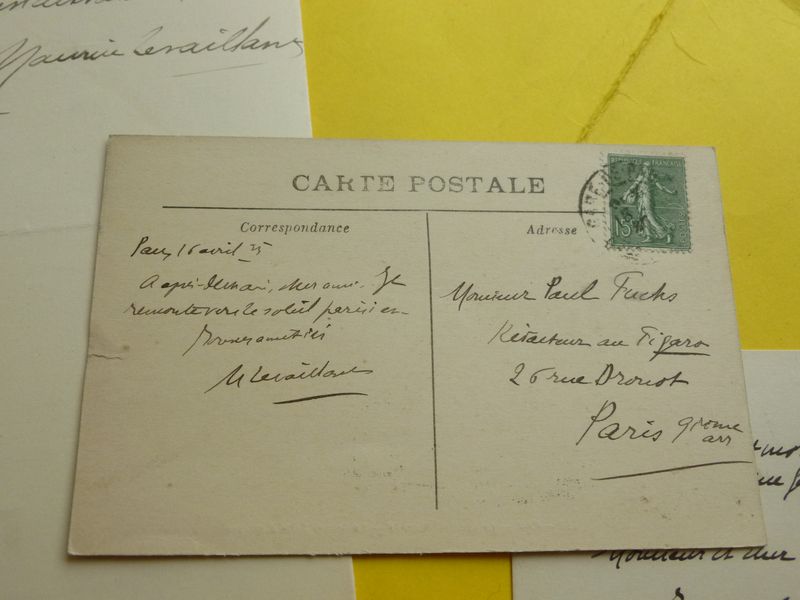 Maurice Levaillant
CARTE POSTALE
Correspondance
Adresse
REPUBLIQUE FRANÇAISE
15
16 avril 25
Après-demain, cher ami. Je
remonte vers le soleil parisien
Bonnes amitiés
M Levaillant
Monsieur Paul Fuchs
Rédacteur au Figaro
26 rue Drouot
Paris 9ème
arr
Monsieur et cher